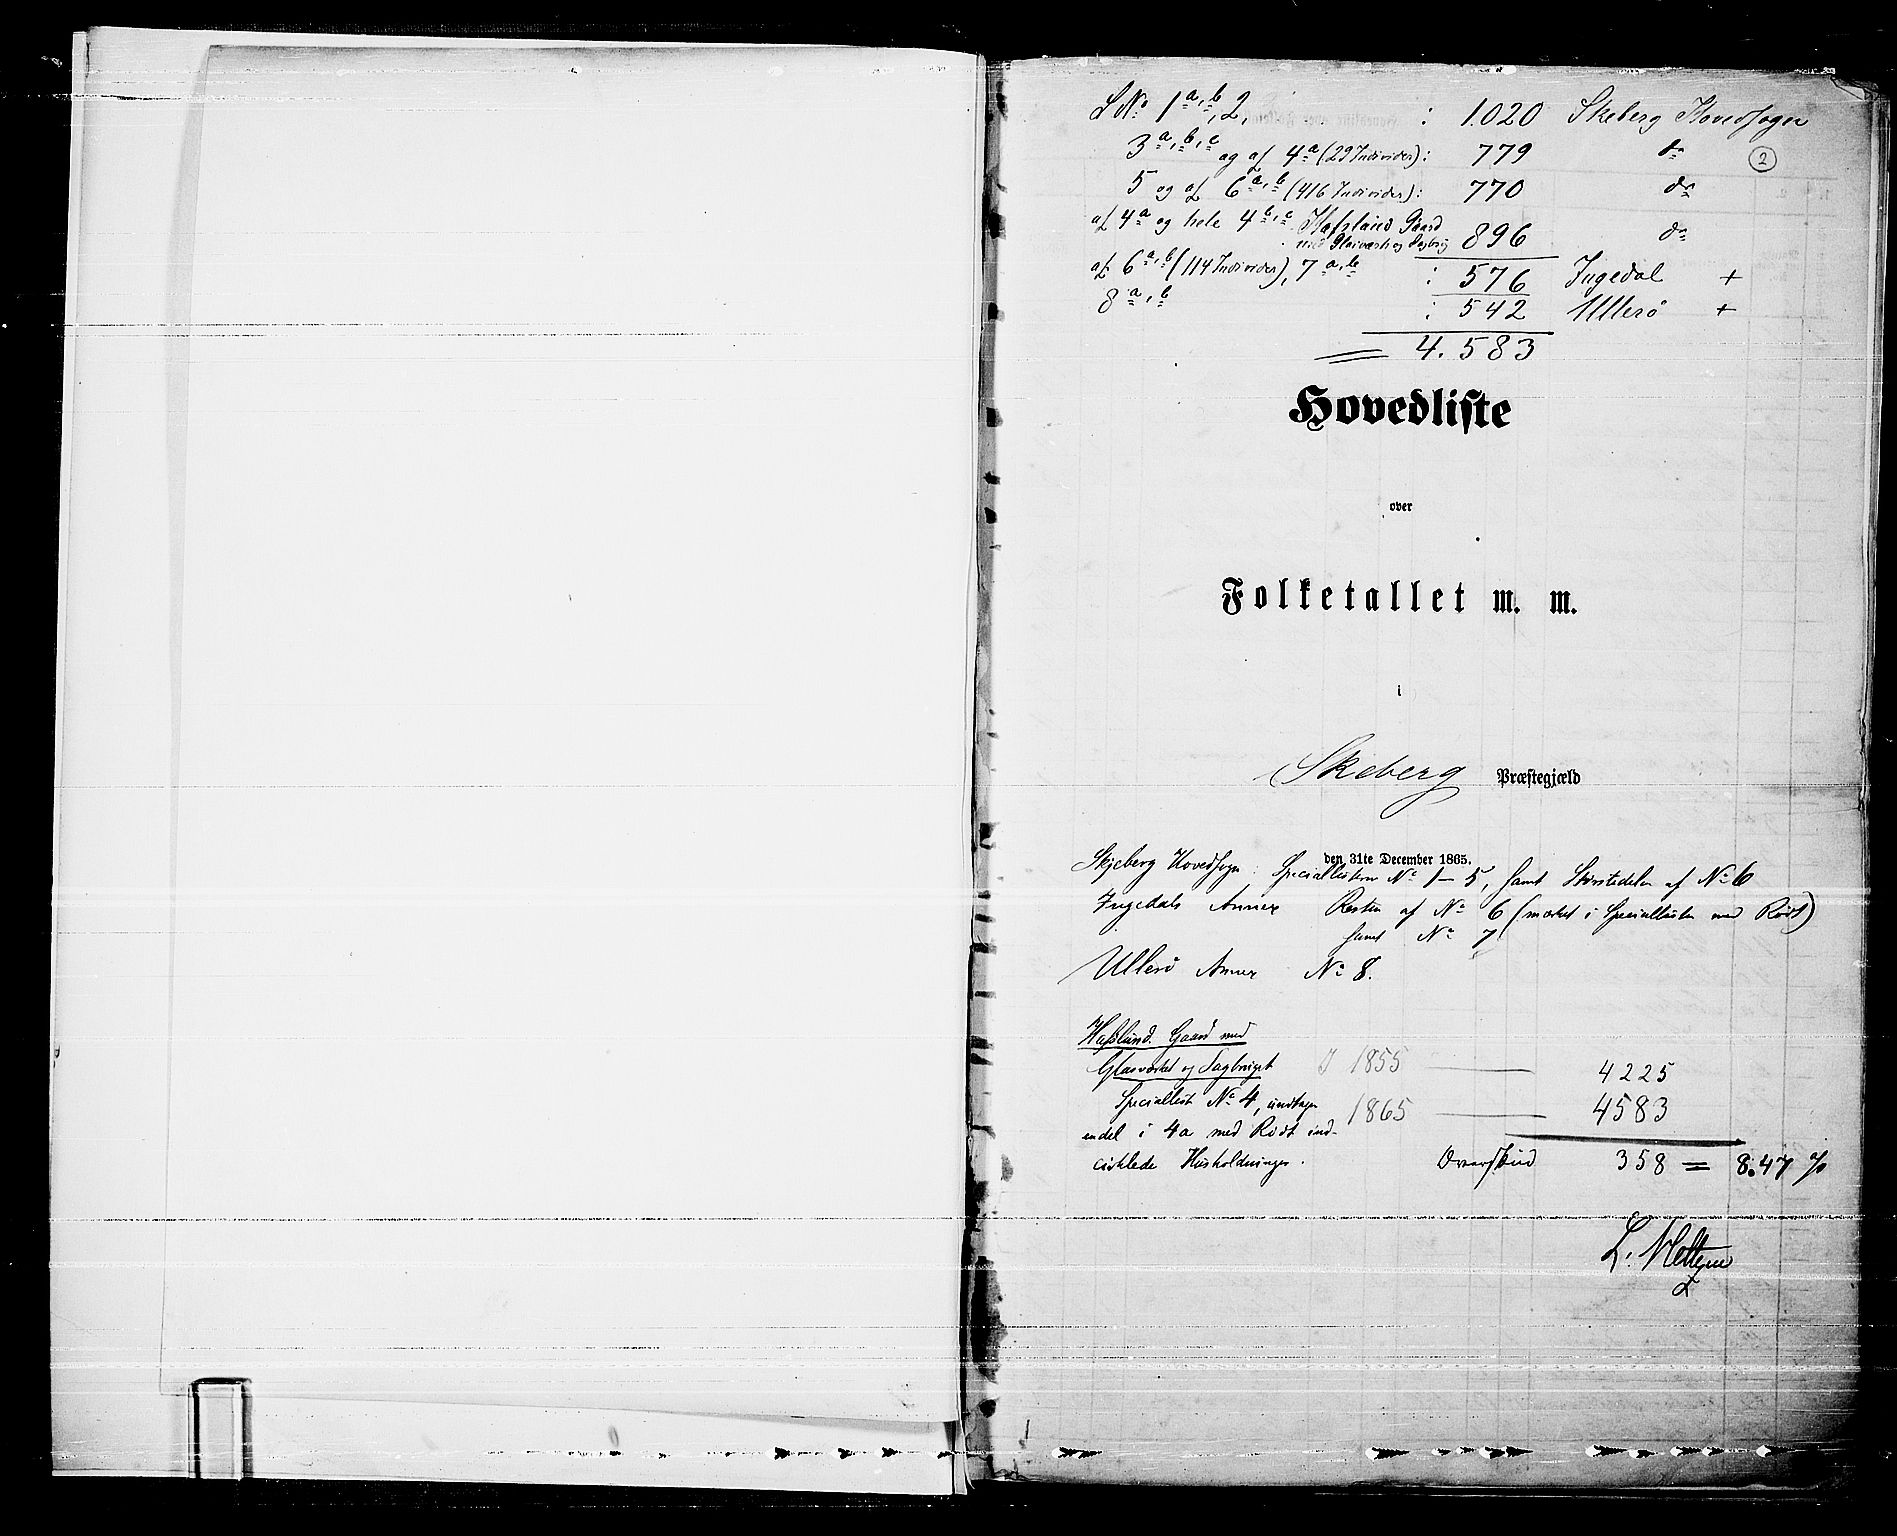 L№ 1a,b, 2, : 1020 Skeberg Hovedsogn
3a,b,c og af 4a (29 Individer): 779 do
2
5 og af 6a,b (416 Individer): 770 do
af 4a og hele 4b,c Hafslund Gaard
med Glasværk og Sagbrug 896 do
af 6a,b (114 Individer), 7a,b : 576 Ingedal +
8a,b : 542 Ullerö +
4.583
Hovedliste
over
Folketallet m. m.
i
Skeberg Præstegjæld
den 31te December 1865.
Skjeberg Hovedsogn: Speciallisterne No 1-5, samt af No 6
Ingedals Annex Resten af No 6 (mærket i Speciallisten med Rödt)
samt No 7
Ullerö Annex No 8.
Hafslund Gaard med
Glasværket og Sagbruget I 1855 4225
Speciallist No 4, undtagen 1865 4583
endel i 4a med Rödt ind-
cirklede Husholdninger. Overskud 358 = 8.47 %